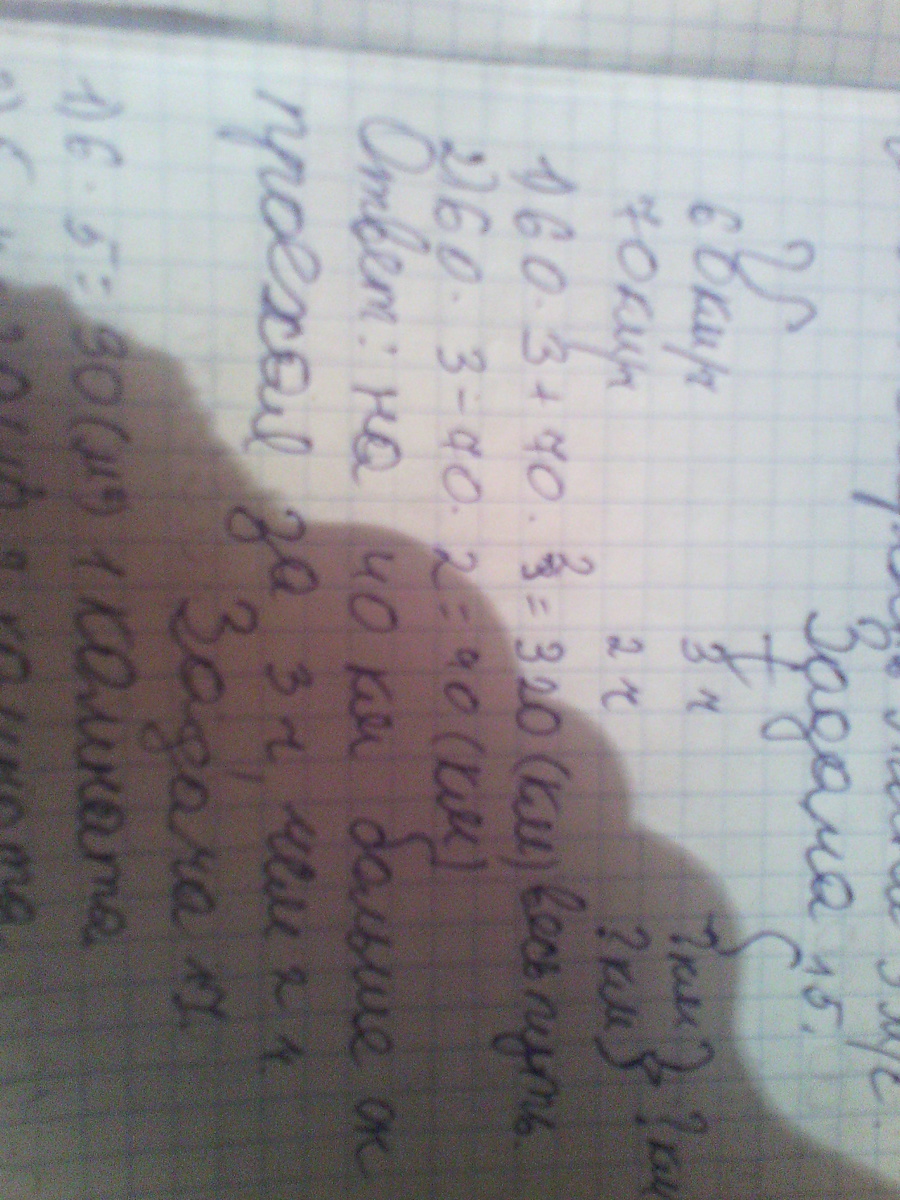 Задача 15.
V t S
60 км/ч 3 ч ? км } ? км
70 км/ч 2 ч ? км }
1) 60 · 3 + 70 · 2 = 320 (км) весь путь.
2) 60 · 3 - 70 · 2 = 40 (км)
Ответ: на 40 км больше он
проехал за 3 ч чем 2 ч
Задача 17
1) 6 · 5 = 30 (м²) 1 комната
2)